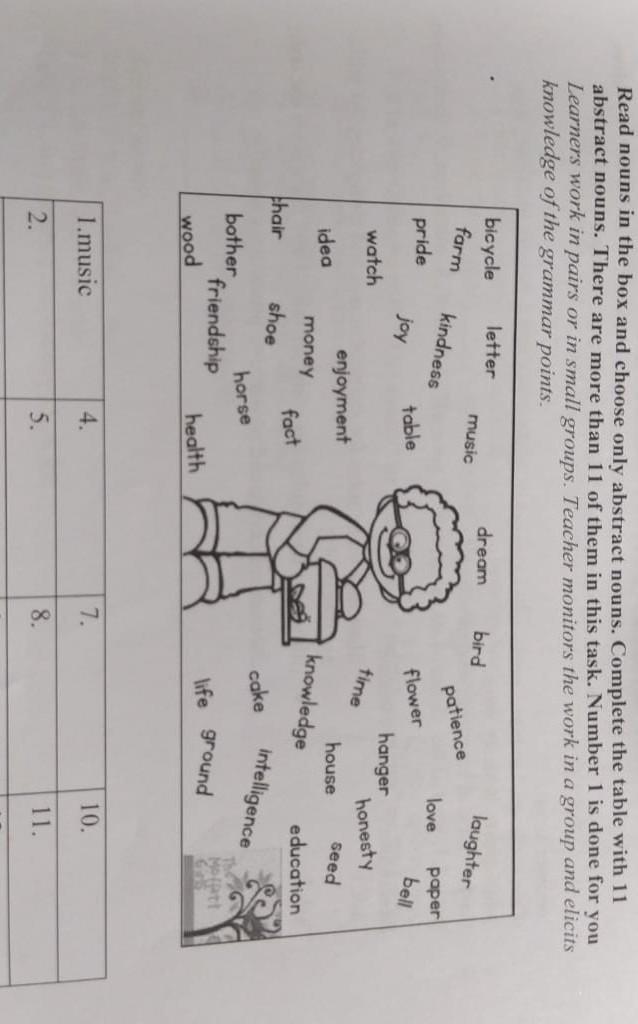 Read nouns in the box and choose only abstract nouns. Complete the table with 11
abstract nouns. There are more than 11 of them in this task. Number 1 is done for you
Learners work in pairs or in small groups. Teacher monitors the work in a group and elicits
knowledge of the grammar points.
bicycle letter music dream bird laughter
farm kindness patience
pride joy table flower love paper
bell
watch hanger
time honesty
idea enjoyment house seed
money knowledge
chair shoe fact education
cake intelligence
bother horse
friendship ground
wood health life
1.music 4. 7. 10.
2. 5. 8. 11.